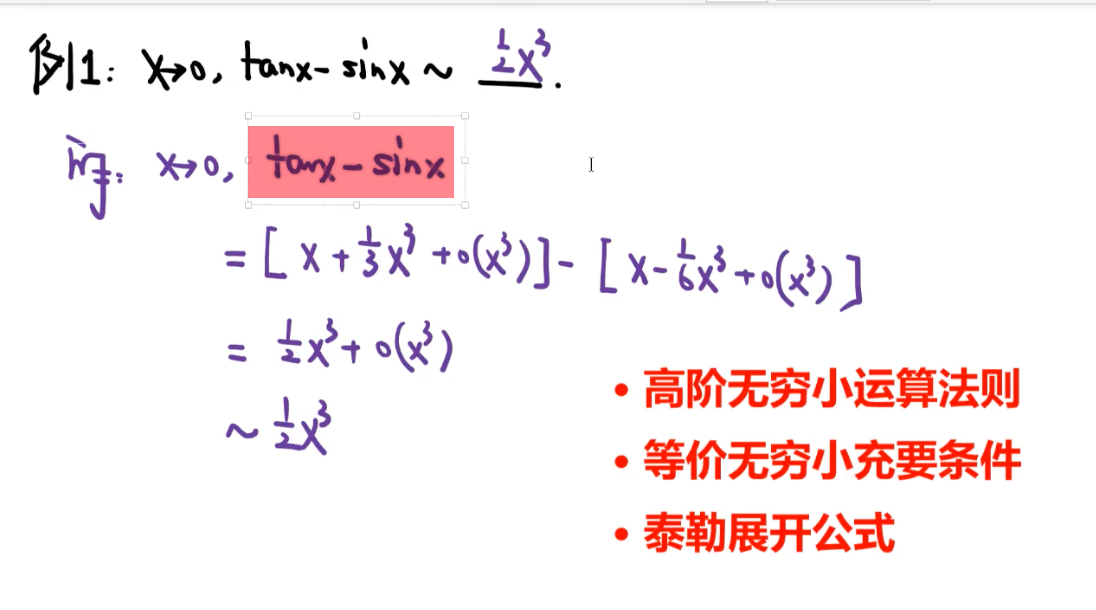 例1: x→0, tanx-sinx ~ 1/2x³.
解: x→0, tanx-sinx
= [x+1/3x³+o(x³)]-[x-1/6x³+o(x³)]
= 1/2x³+o(x³)
~ 1/2x³
• 高阶无穷小运算法则
• 等价无穷小充要条件
• 泰勒展开公式